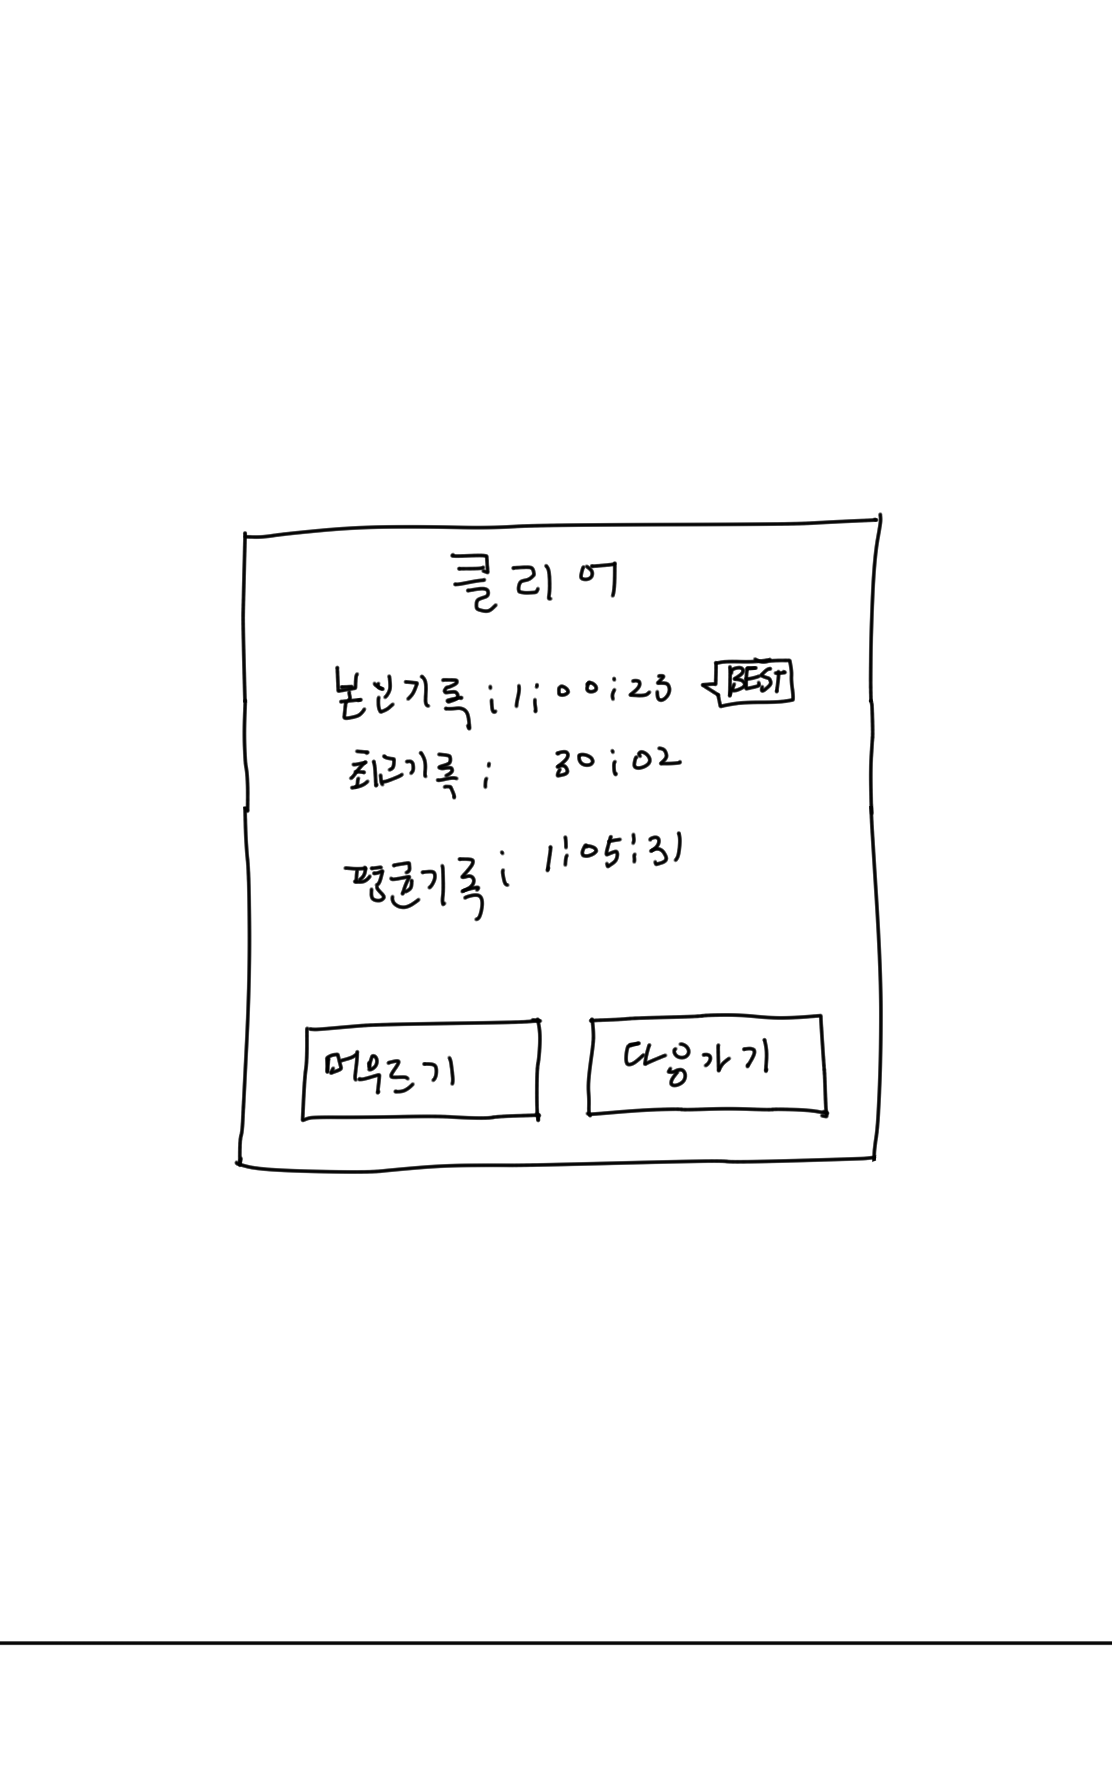 클리어
본인기록 : 1:00:23 BEST
최고기록 : 30:02
평균기록 : 1:05:31
머무르기 다음가기